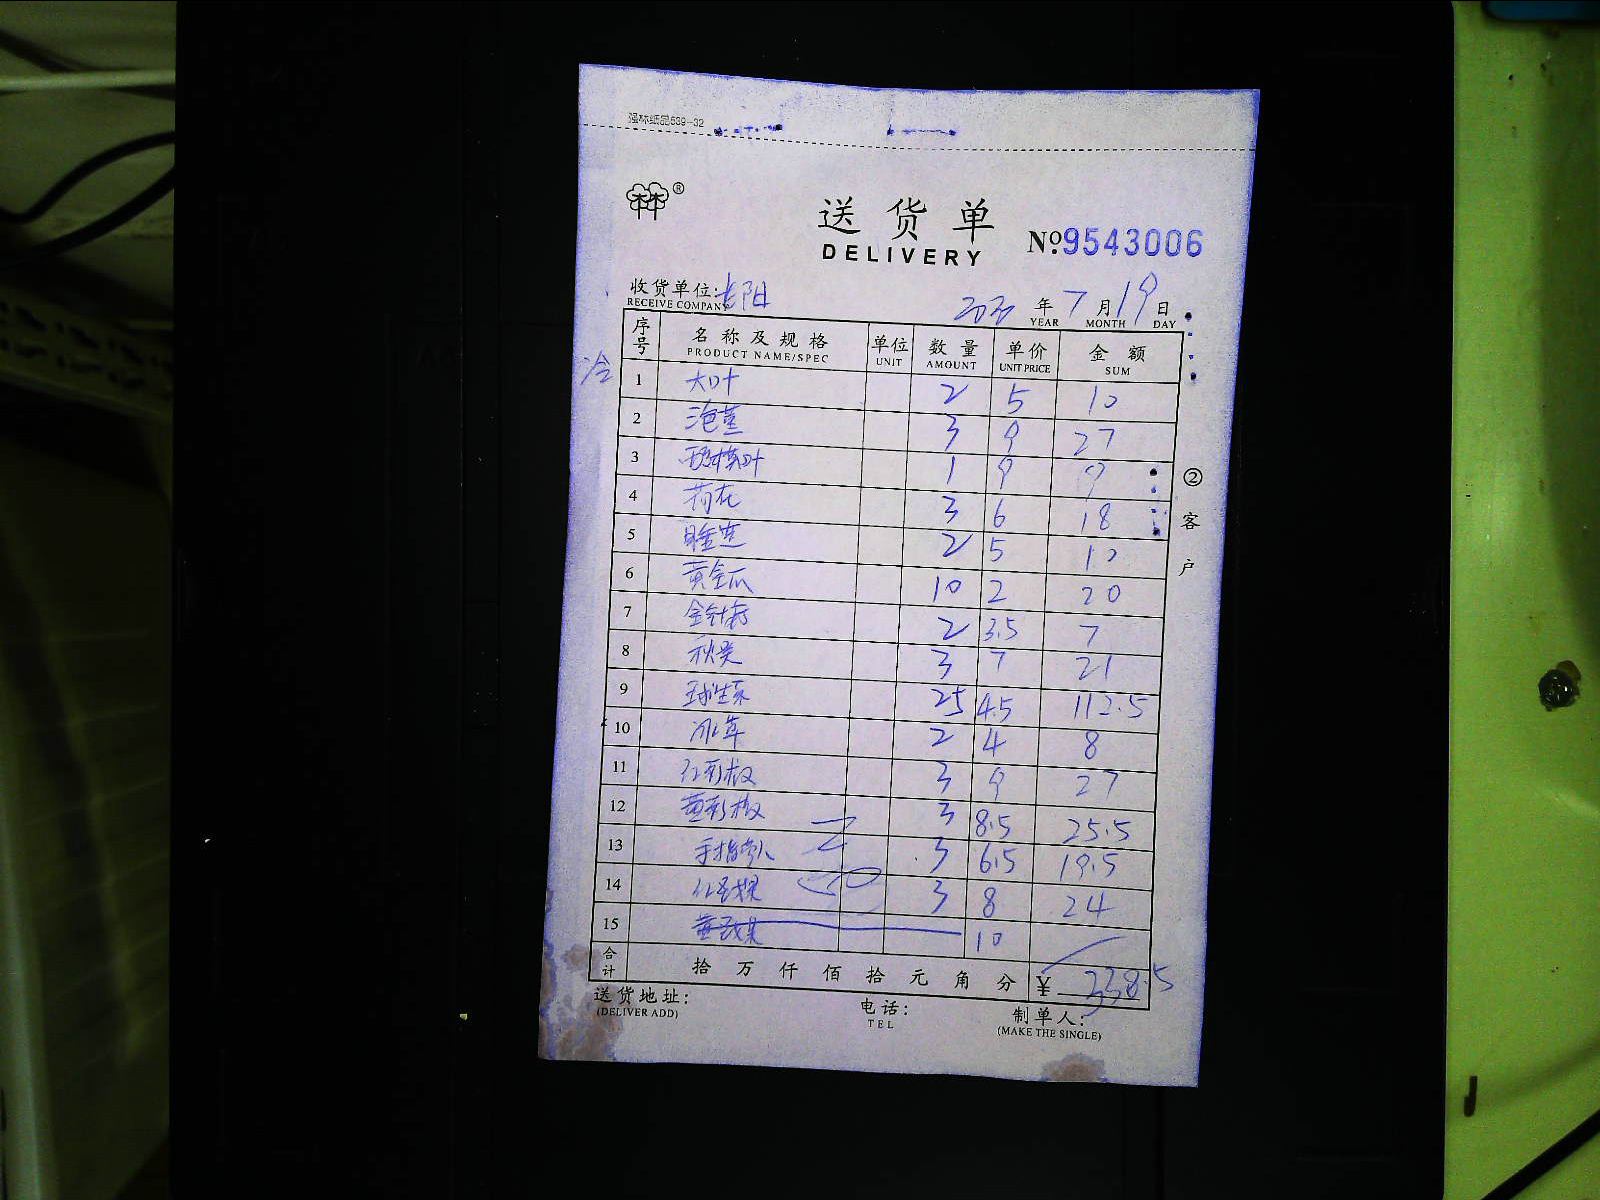 强林纸品539-32
林林®
送货单
DELIVERY
No.9543006
收货单位:
RECEIVE COMPANY
年 7 月 19 日
YEAR MONTH DAY
冷
序号 名称及规格 单位 数量 单价 金额
PRODUCT NAME/SPEC UNIT AMOUNT UNIT PRICE SUM
1 大叶 2 5 10
2 3 9 27
3 1 9 9
4 荷花 3 6 18
5 睡莲 2 5 10
6 黄金瓜 10 2 20
7 金针菇 2 3.5 7
8 秋葵 3 7 21
9 球生菜 25 4.5 112.5
10 冰草 2 4 8
11 红彩椒 3 9 27
12 黄彩椒 3 8.5 25.5
13 手指 3 6.5 19.5
14 3 8 24
15 10
合计 拾 万 仟 佰 拾 元 角 分 ¥ 338.5
②客户
送货地址:
(DELIVER ADD)
电话:
TEL
制单人:
(MAKE THE SINGLE)